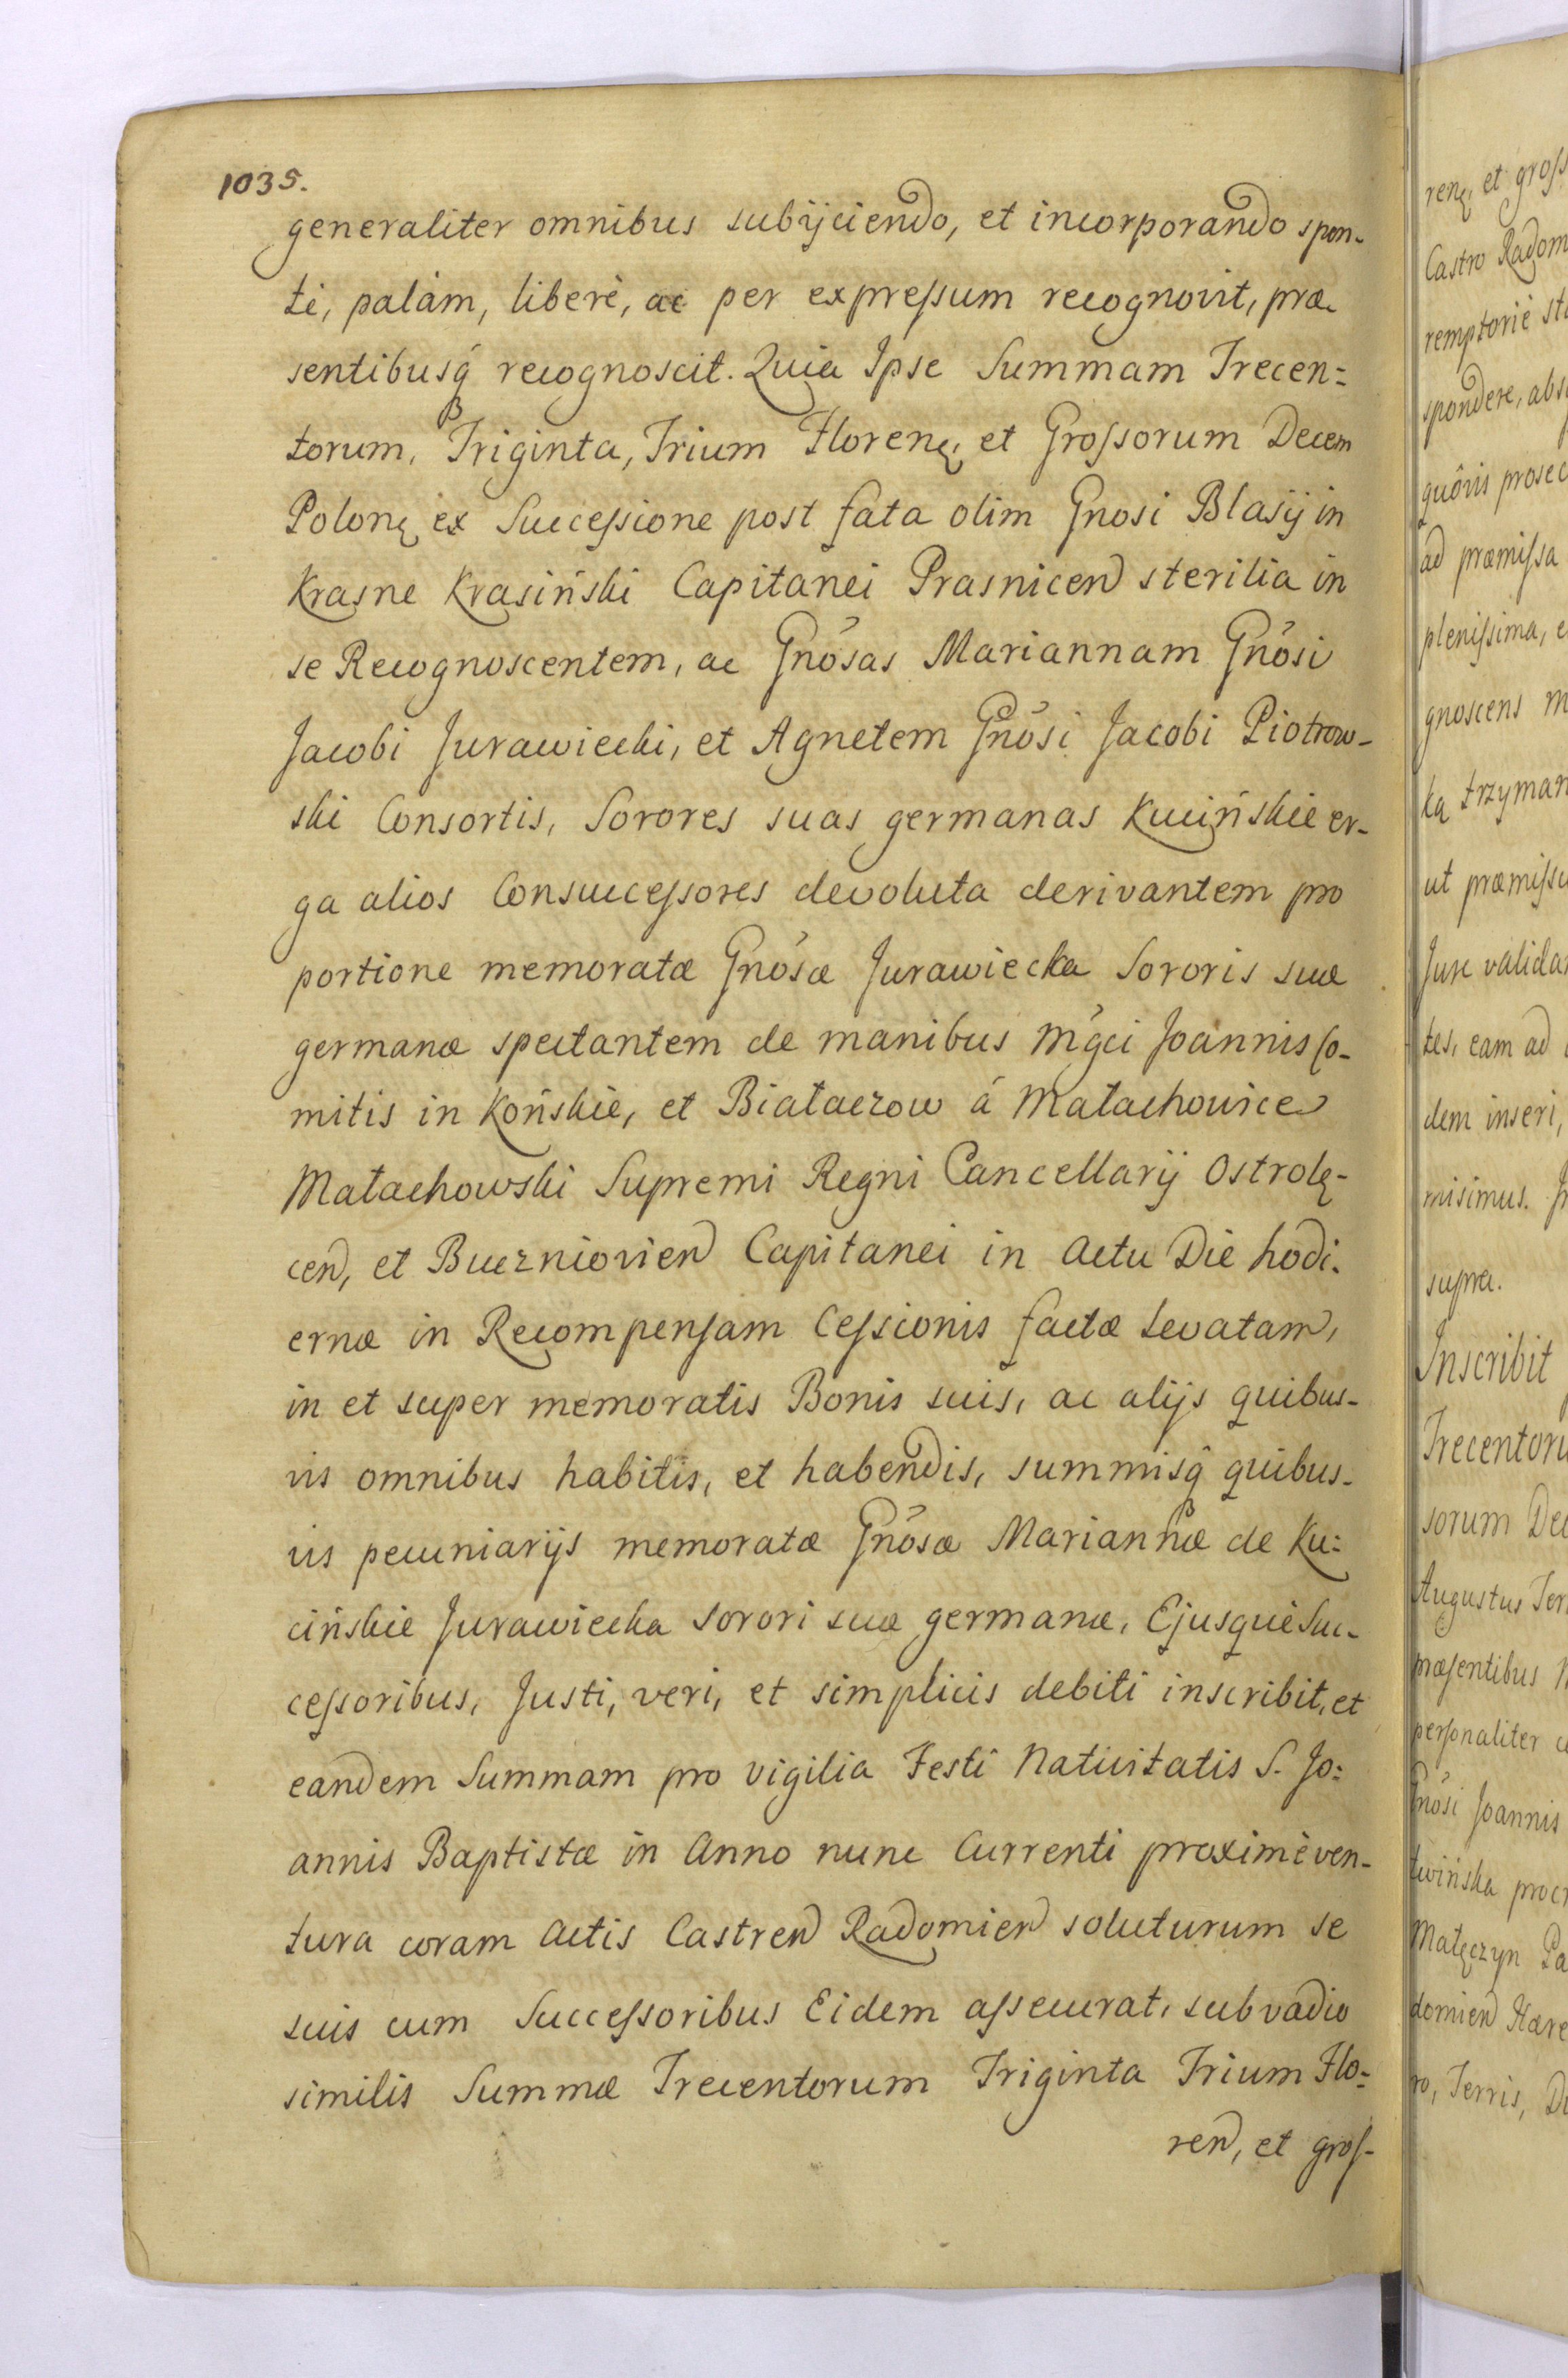 1035.
generaliter omnibus subijciendo, et incorporando spon-
tè, palàm, liberè, ac per expreſsum recognovit, præ-
sentibusq́ recognoscit. Quia Ipse Summam Trecen=
torum, Triginta, Trium Florenę, et Groſsorum Decem
Polonę ex Succeſsione post fata olim Gnosi Blasij in
Krasne Krasiński Capitanei Prasnicen̄ sterilia in
se Recognoscentem, ac Gnõsas Mariannam Gnõsi
Jacobi Jurawiecki, et Agnetem Gnõsi Jacobi Piotrow-
ski Consortis, Sorores suas germanas Kucińskie er-
ga alios Consucceſsores devoluta derivantem pro
portione memoratæ Gnõsæ Jurawiecka Sororis suæ
germanæ spectantem de manibus Mg̃ci Joannis Co-
mitis in Końskie, et Białaczow á Małachowice
Małachowski Supremi Regni Cancellarij Ostrolę-
cen̄, et Buczniovien̄ Capitanei in Actu Die hodi-
ernæ in Recompenſam Ceſsionis factæ Levatam,
in et super memoratis Bonis suis, ac alijs quibus-
vis omnibus habitis, et habendis, summisq̂ quibus-
vis pecuniarijs memoratæ Gnõsæ Mariannæ de Ku=
cińskie Jurawiecka Sorori suæ germanæ, Ejusquè Suc-
ceſsoribus, Justi, veri, et simplicis debiti inscribit, et
eandem Summam pro vigilia Festi Nativitatis S. Jo=
annis Baptistæ in Anno nunc Currenti proximè ven-
tura coram Actis Castren̄ Radomien̄ soluturum se
suis cum Succeſsoribus Eidem aſsecurat, sub vadio
similis Summæ Trecentorum Triginta Trium Flo=
ren̄, et groſ-
renę, et groſs
Castro Radom
remptoriè sta
spondere, abs
quôvis prosec
ad præmiſsa
pleniſsima, e
gnoscens m
ką trzyman
ut præmiſsu
Jure valida
tes, eam ad
dem inseri,
misimus.
supra.
Inscribit
Trecentoru
sorum Dec
Augustus Ter
præſentibus
perſonaliter
Gnõsi Joannis
twińska procr
Małęczyn Pa
domien̄ Hære
ro, Terris, Di